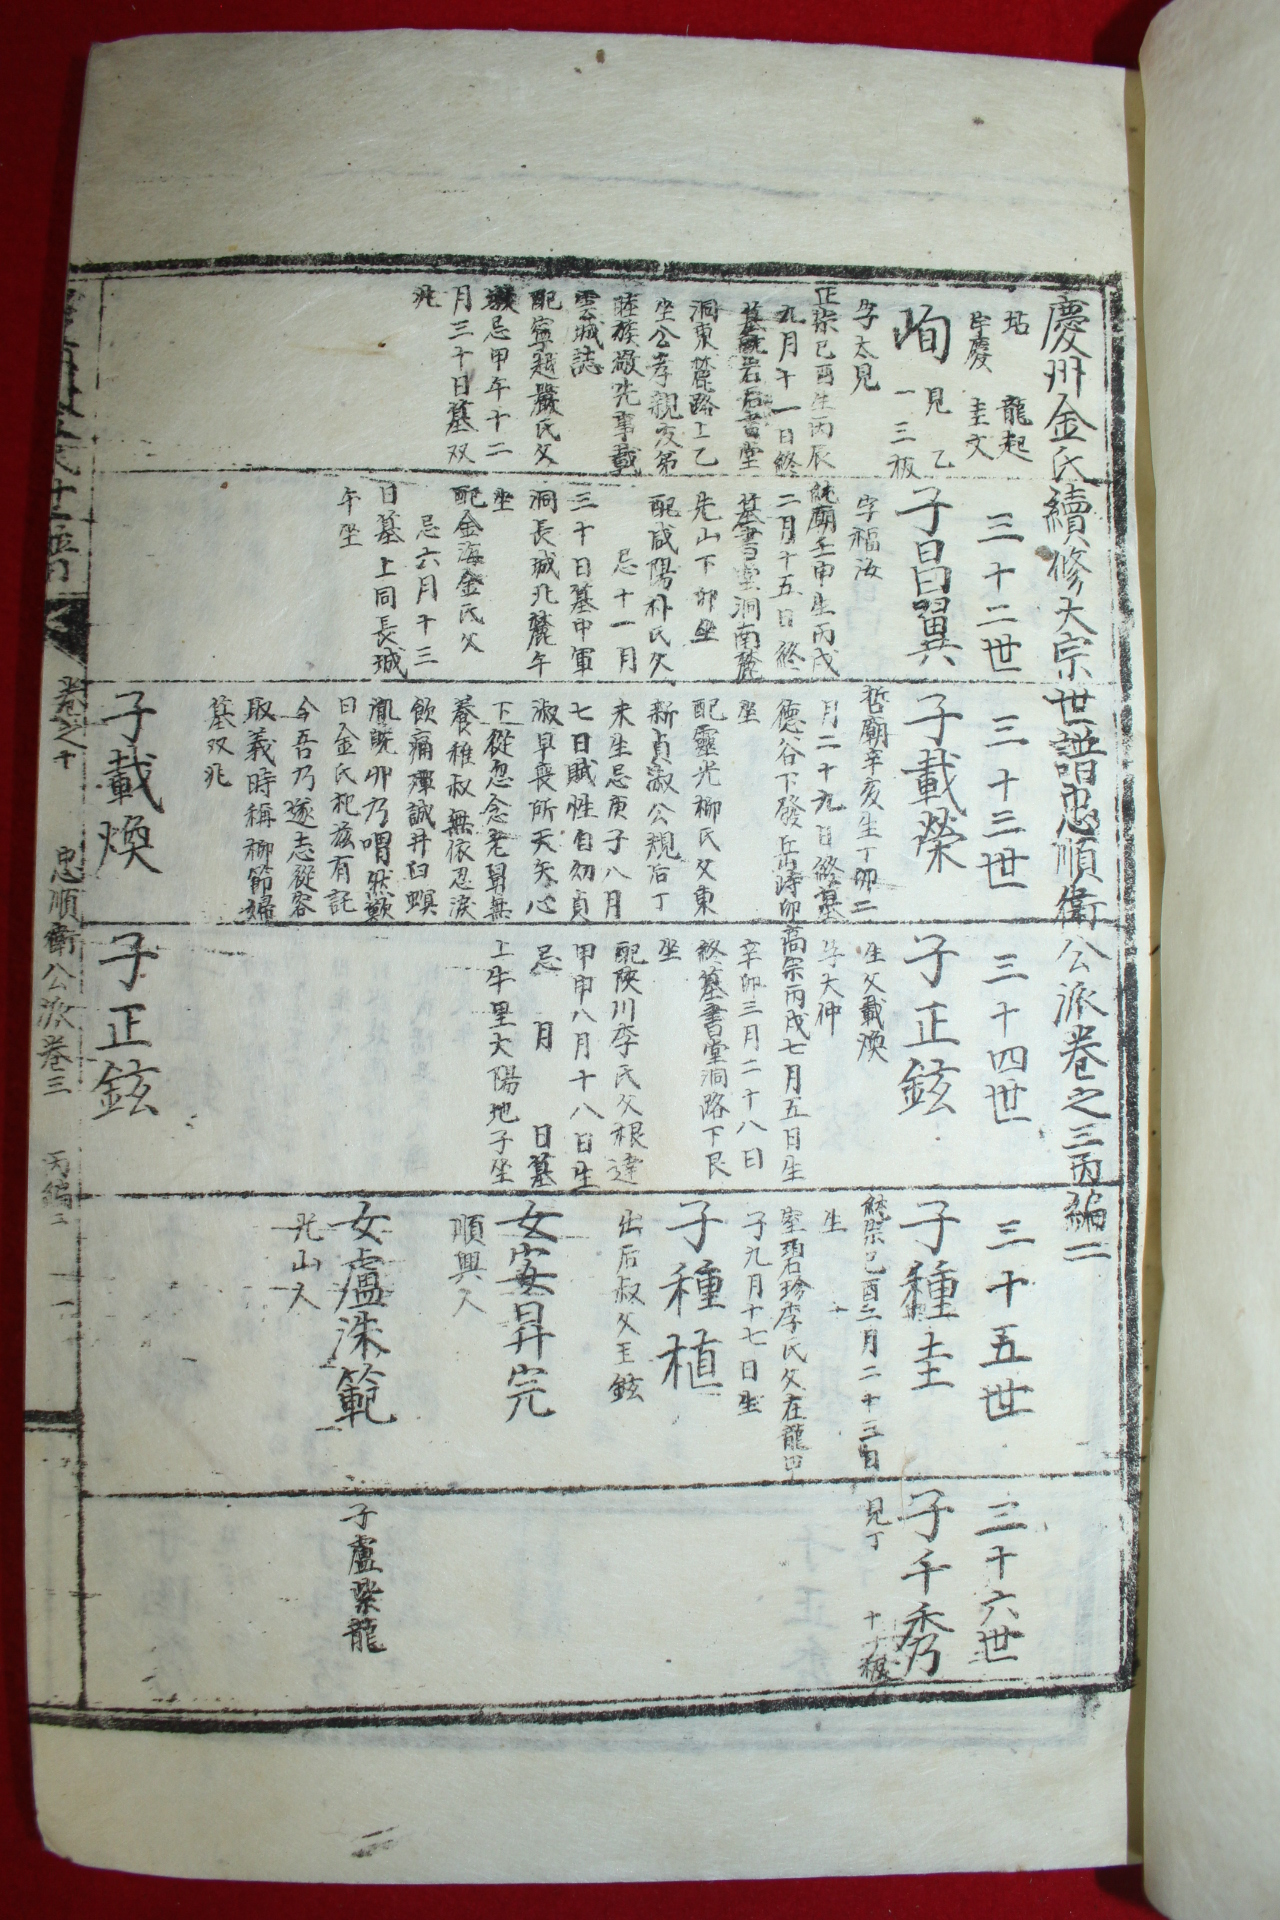 慶州金氏續修大宗世譜忠順衛公派卷之三丙編二
坫 龍起
字慶 圭文
峋
見乙
一三板
字太見
正宗己酉生丙辰
九月十一日終
墓戠岩后書堂
洞東麓路上乙
坐公孝親友弟
睦族敬先事載
雲城誌
配寧越嚴氏父
忌甲午十二
月三十日墓双
兆
三十二世
子昌翼
字福汝
純廟壬申生丙戌
二月十五日終
墓書堂洞南麓
先山下卯坐
配咸陽朴氏父
忌十一月
三十日墓中軍
洞長城北麓午
坐
配金海金氏父
忌六月十三
日墓上同長城
午坐
三十三世
子載榮
哲廟辛亥生丁卯二
月二十九日終墓
德谷下發岳嶹卯
坐
配靈光柳氏父東
新貞淑公規后丁
未生忌庚子八月
七日賦性自幼貞
淑早喪所天矢心
下從忽念老舅無
養稚叔無依忍淚
飮痛殫誠井臼螟
胤旣卯乃喟然歎
曰金氏祀玆有託
今吾乃遂志從容
取義時稱柳節婦
墓双兆
子載煥
三十四世
子正鉉
生父載煥
字大仲
高宗丙戌七月五日生
辛卯三月二十八日
終墓書堂洞路下艮
坐
配陜川李氏父根達
甲申八月十八日生
忌 月 日墓
上牛里大陽地子坐
子正鉉
三十五世
子種圭
純宗己酉二月二十三日
生
室碧珍李氏父在龍甲
子九月十七日生
子種植
出后叔父玉鉉
女安昇完
順興人
女盧洙範
光山人
三十六世
子千秀
見丁
十十板
子盧榮龍
卷之十 忠順衛公派卷三 丙編二